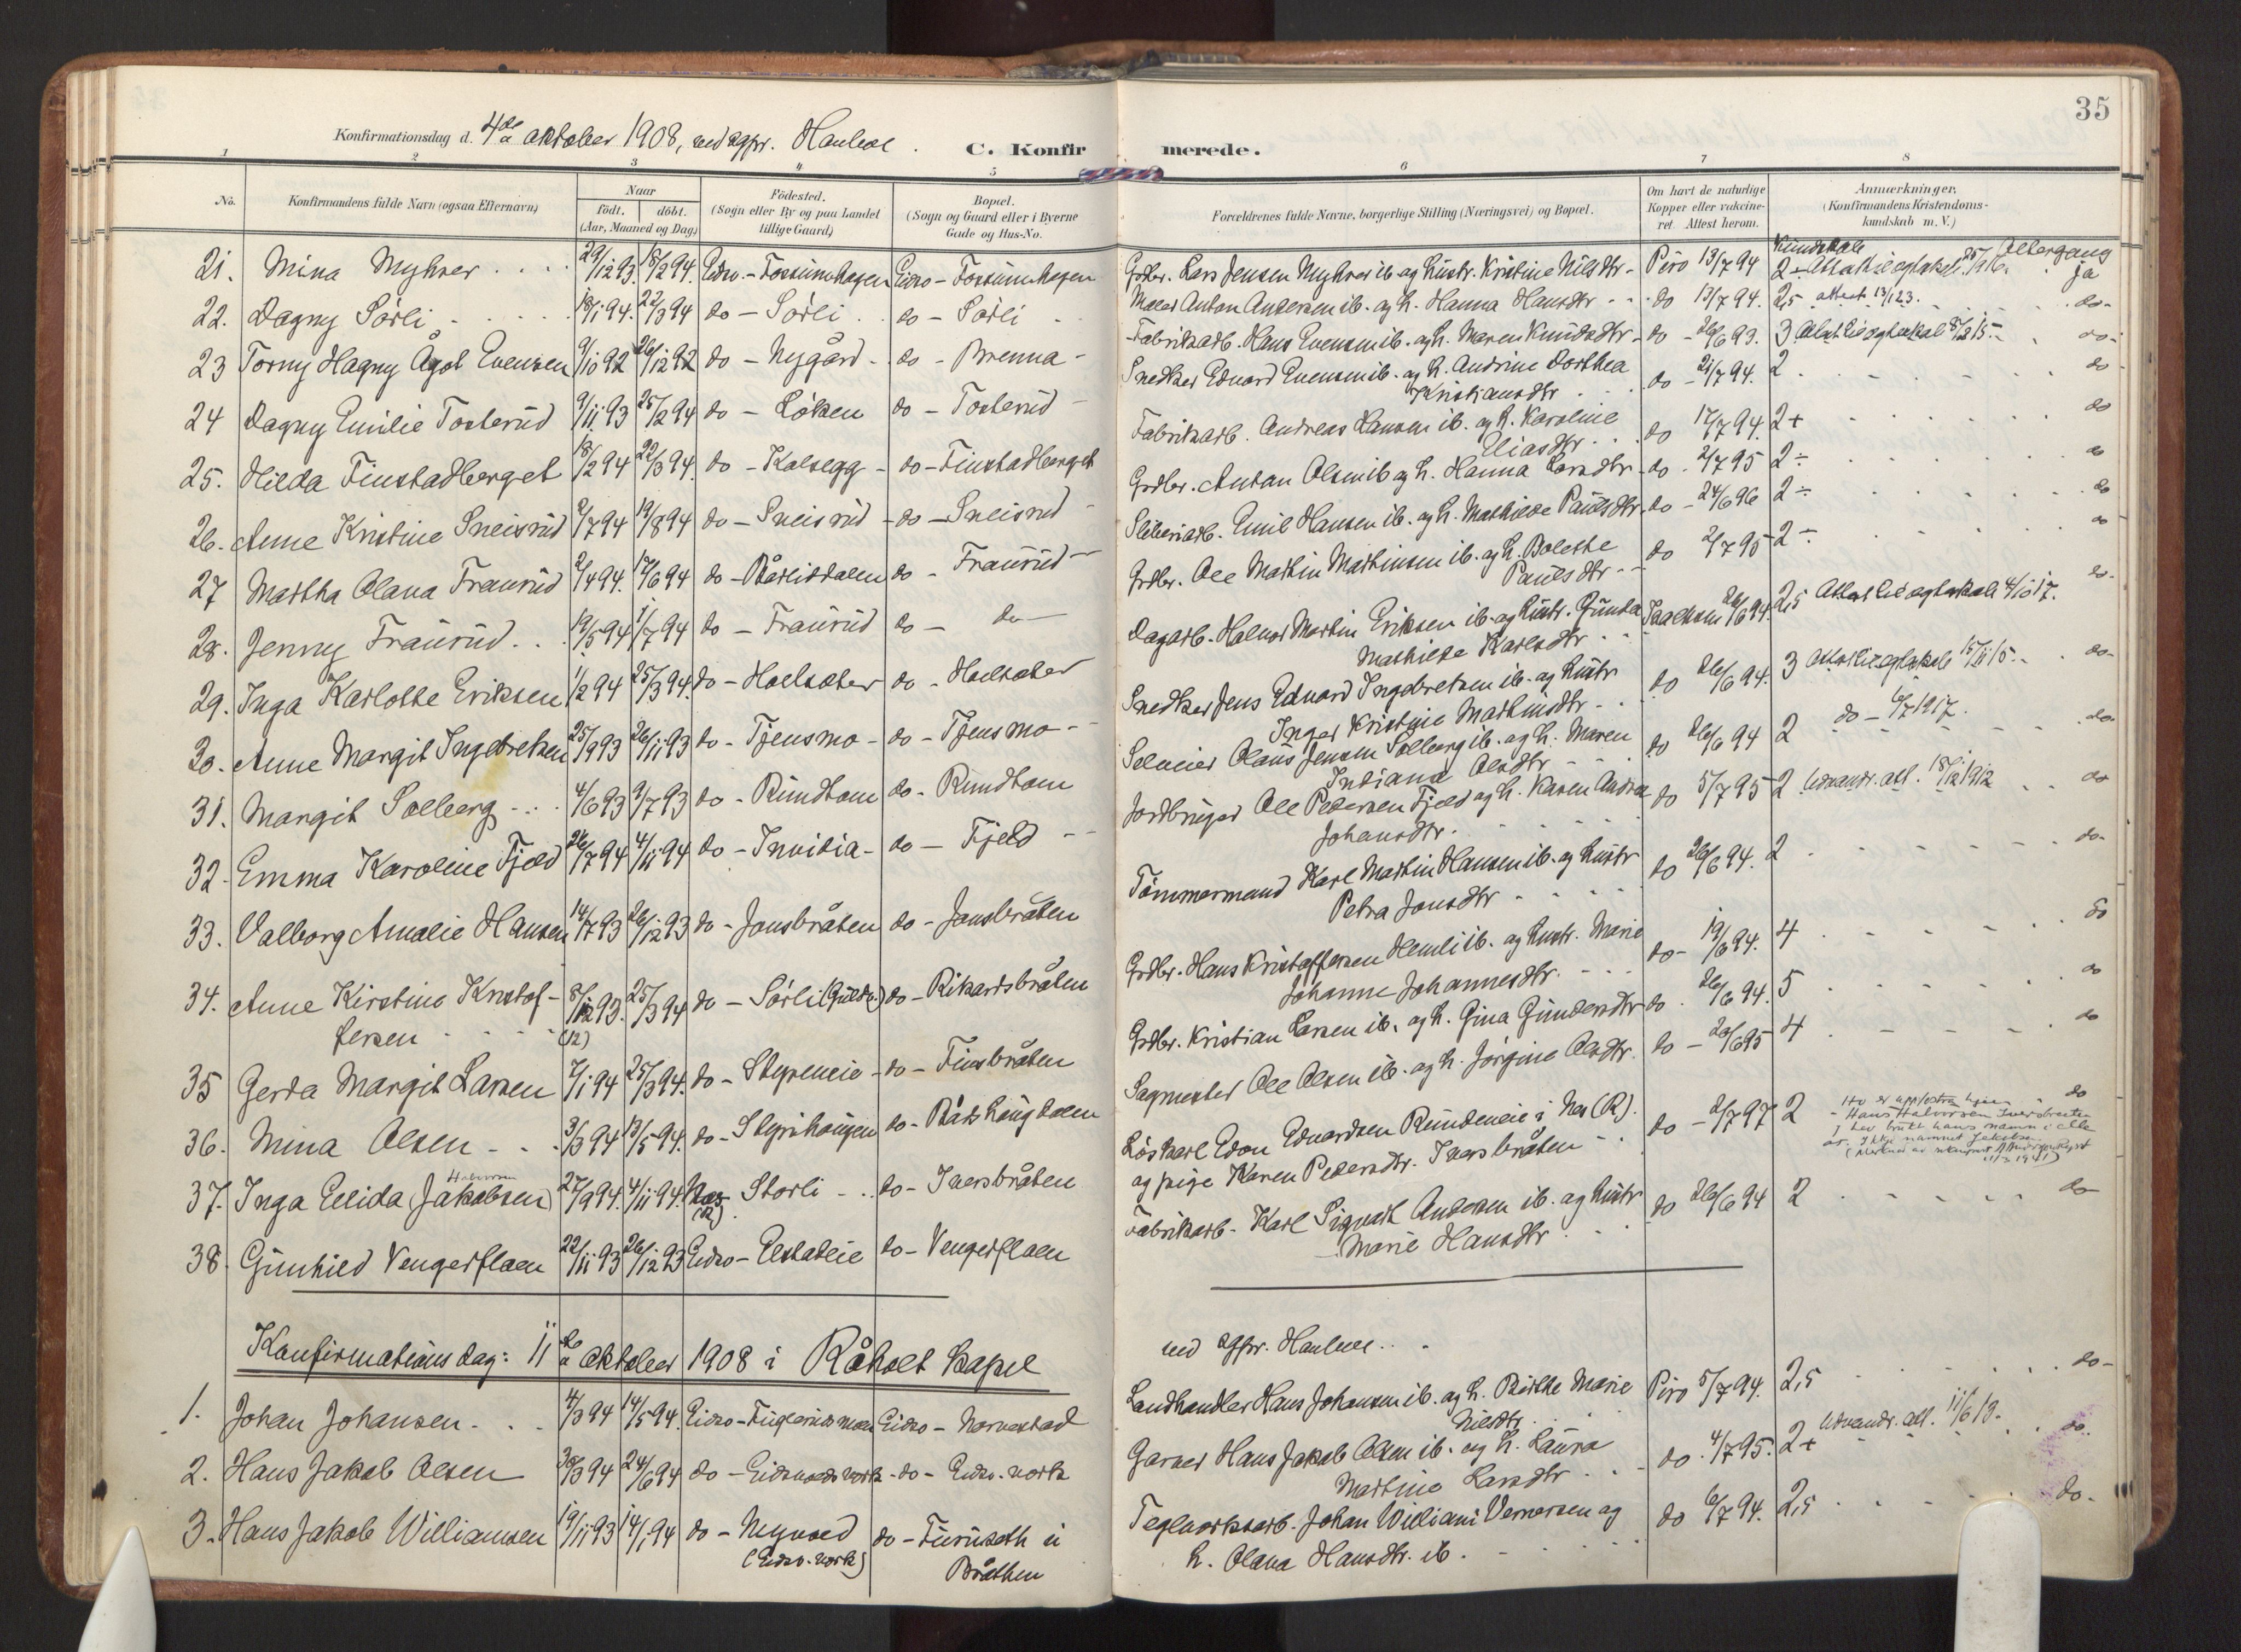 35
Konfirmationsdag d. 4de oktober 1908, ved sgpr. Hanluse.
C. Konfirmerede.
1 2 3 4 5 6 7 8
No. Konfirmandens fulde Navn (ogsaa Efternavn) Naar födt. döbt. (Aar, Maaned og Dag) Födested. (Sogn eller By og paa Landet tillige Gaard) Bopæl. (Sogn og Gaard eller i Byerne Gade og Hus-No. Forældrenes fulde Navne, borgerlige Stilling (Næringsvei) og Bopæl. Om havt de naturlige Kopper eller vaccineret. Attest herom. Anmærkninger. (Konfirmandens Kristendomskundskab m. V.)
Kundskab Altergang
21. Mina Myhrer 29/12 93. 18/2 94. Eidsv. - Fossumhagen Eidsv - Fossumhagen Grdbr. Lars Jensen Myhrer ib og Hustr. Kristine Nilsdtr - Piro 13/7 94 2÷ ja
22. Dagny Sørli 18/1 94. 22/3 94 do - Sørli do - Sørli Maler Anton Andersen ib. og h. Hanna Hansdtr - do 13/7 94. 2,5 attest 13/1 23. do-
23 Torny Hagny Ågot Evensen 9/10 92 26/12 92 do - Nygård - do - Brenna - Fabrikarb. Hans Evensen ib. og h. Maren Knudsdtr - do - 26/6 93. 3 do-
24 Dagny Emilie Tosterud 9/11 93 25/2 94 do - Løken do - Tosterud Snedker Edvard Evensen ib. og h. Andrine Dorthea Kristiansdtr do - 21/7 94. 2 do
25. Hilda Finstadberget 18/2 94 22/3 94. do - Kolsegg - do - Finstadberget Fabrikarb. Andreas Hansen ib. og h. Karoline Eliasdtr do 17/7 94. 2+ do
26. Anne Kristine Sneisrud 2/7 94 19/8 94 do - Sneisrud - do - Sneisrud Grdbr. Anton Olsen ib og h. Hanna Larsdtr - do - 2/7 95 2÷ do
27 Martha Olava Fraurud 2/4 94. 17/6 94 do - Bårlidalen do - Fraurud Sliberiarb. Emil Hansen ib. og h. Mathilde Paulsdtr. do - 24/6 96 2÷ do
28. Jenny Fraurud 19/5 94 1/7 94 do - Fraurud do - do Grdbr. Ole Martin Martinsen ib. og h. Bolette Paulsdtr - do 2/7 95 2÷ do
29. Inga Karlotte Eriksen 1/2 94 25/3 94. do - Holsæter do - Holsæter Dagarb. Halvor Martin Eriksen ib. og Hustr. Gunda Mathilde Karlsdtr 26/6 94. 2,5 do.
30. Anne Margit Ingebretsen 25/9 93 26/11 93 do - Tjensmo - do - Tjensmo - Snedker Jens Edvard Ingebretsen ib. og Hustr Inger Kristine Martinsdtr - do 26/6 94. 3 do-
31. Margit Solberg 4/6 93 9/7 93 do - Rundtom do - Rundtom Selveier Olaus Jensen Solberg ib. og h. Maren Indiana Olsdtr do 26/6 94 2 do - 6/7 1917. do-
32. Emma Karoline Fjeld 26/7 94 4/11 94 do - do - Fjeld Jordbruger Ole Pedersen Fjeld og h. Karen Andrea Johansdtr. do 5/7 95 2 Udvandr. att. 18/12 1912 do
33. Valborg Amalie Hansen 14/7 93 26/12 93 do - Jonsbråten do - Jonsbråten Tømmermand Karl Martin Hansen ib. og Hustr Petra Jonsdtr do 26/6 94. 2 do-
34. Anne Kirstine Kristoffersen 8/12 93. (12) 25/3 94 do - Sørli (Guldv.) do - Rikardsbråten Grdbr. Hans Kristoffersen Hemli ib. og Hustr. Marie Johanne Johannesdtr. do - 19/6 94. 4 do
35 Gerda Margit Larsen 7/1 94 25/3 94. do - Styreneie - do - Finsbråten Grdbr. Kristian Larsen ib. og h. Gina Gundersdtr do 26/6 94. 5 do
36. Mina Olsen 3/3 94 13/5 94. do - Styrihaugen do - Båtshaugdalen Sagmester Ole Olsen ib. og h. Jørgine Olsdtr. do - 20/6 95 4 do
37. Inga Elida (Jakobsen) Halvorsen 27/9 94. 4/11 94. Nes (R). Storli - do - Iversbråten Løskarl Edon Edvardsen Rundeneie i Nes (R). og pige Karen Pedersdtr. Iversbråten do - 2/7 97 2 Ho er uppfostra hjaa Hans Halvorsen Iversbråten og hev brukt hans namn i alle år. Ikkje namnet Jakobsen. do
38. Gunhild Vengerflaen 22/11 93 26/12 93 Eidsv - Elstadeie do - Vengerflaen Fabrikarb. Karl Sigvart Andersen ib. og Hustr Marie Hansdtr do 26/6 94 2 do
Konfirmationsdag: 11te oktober 1908 i Råholt kapel ved sgpr. Hanluse.
1. Johan Johansen 4/3 94 14/5 94. Eidsv - Fuglerudsmoen Eidsv - Nornestad Landhandler Hans Johansen ib. og h. Birthe Marie Nilsdtr Piro 5/7 94. 2,5 do-
2. Hans Jakob Olsen 30/3 94 24/6 94 do - Eidsvoldsværk - do - Eidsv. værk Garver Hans Jakob Olsen ib. og h. Laura Martine Larsdtr do 4/7 95. 2+ Udvandr. att. 11/6 13. do.
3. Hans Jakob Williamsen 19/11 93 14/1 94 do - Nyvold (Eidsv. værk) do - Furuseth i Bråthen Teglverksarb. Johan William Vernersen og h. Olava Hansdtr. ib. do 6/7 94. 2,5 do-